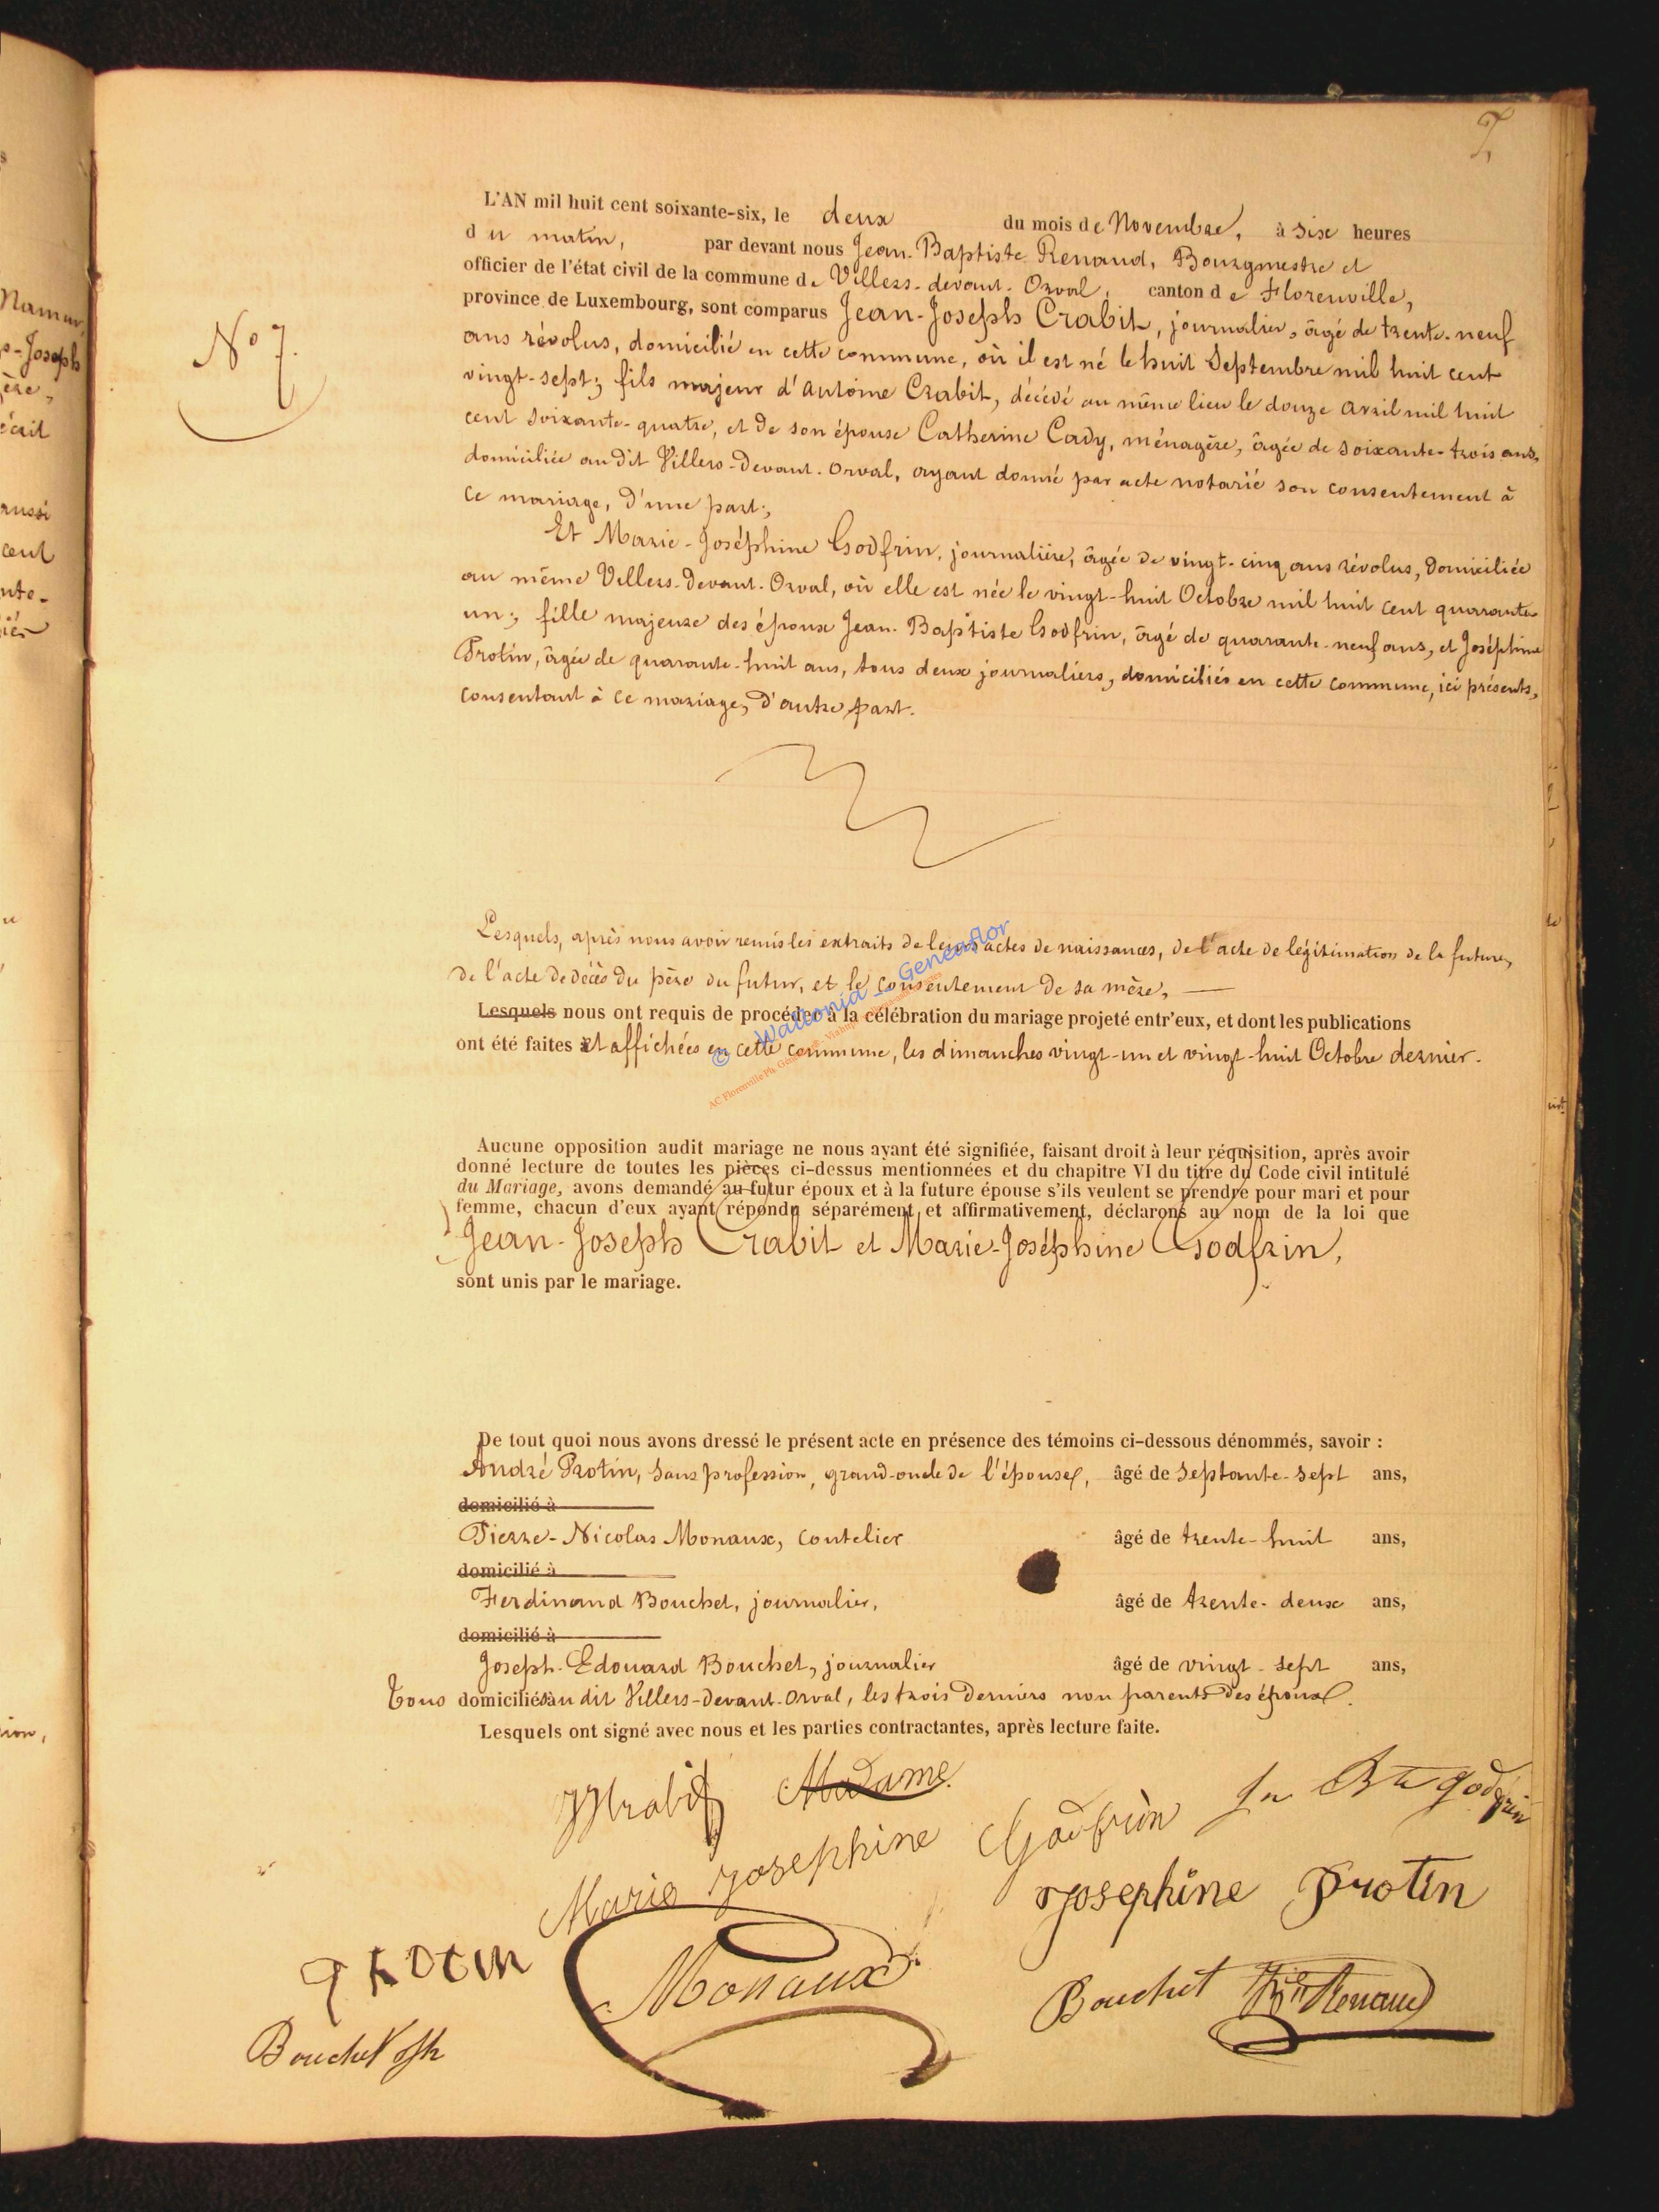 7
Nº 7.
L'AN mil huit cent soixante-six, le deux du mois de Novembre, à six heures
du matin, par devant nous Jean-Baptiste Renaud, Bourgmestre et
officier de l'état civil de la commune de Villers-devant-Orval, canton de Florenville,
province de Luxembourg, sont comparus Jean-Joseph Crabit, journalier, âgé de trente-neuf
ans révolus, domicilié en cette commune, où il est né le huit Septembre mil huit cent
vingt-sept; fils majeur d'Antoine Crabit, décédé au même lieu le douze avril mil huit
cent soixante-quatre, et de son épouse Catherine Cady, ménagère, âgée de soixante-trois ans,
domiciliée audit Villers-Devant-Orval, ayant donné par acte notarié son consentement à
ce mariage, d'une part;
Et Marie-Joséphine Godfrin, journalière, âgée de vingt-cinq ans révolus, domiciliée
au même Villers-Devant-Orval, où elle est née le vingt-huit Octobre mil huit cent quarante-
un; fille majeure des époux Jean-Baptiste Godfrin, âgé de quarante-neuf ans, et Joséphine
Protin, âgée de quarante-huit ans, tous deux journaliers, domiciliés en cette commune, ici présents,
consentant à ce mariage, d'autre part.
Lesquels, après nous avoir remis les extraits de leurs actes de naissances, de l'acte de légitimation de la future,
de l'acte de décès du père du futur, et le consentement de sa mère,
Lesquels nous ont requis de procéder à la célébration du mariage projeté entr'eux, et dont les publications
ont été faites et affichées en cette commune, les dimanches vingt-un et vingt-huit Octobre dernier.
© Wallonia - Geneaflor
AC Florenville Ph. Généaflor
Aucune opposition audit mariage ne nous ayant été signifiée, faisant droit à leur réquisition, après avoir
donné lecture de toutes les pièces ci-dessus mentionnées et du chapitre VI du titre du Code civil intitulé
du Mariage, avons demandé au futur époux et à la future épouse s'ils veulent se prendre pour mari et pour
femme, chacun d'eux ayant répondu séparément et affirmativement, déclarons au nom de la loi que
Jean-Joseph Crabit et Marie-Joséphine Godfrin,
sont unis par le mariage.
De tout quoi nous avons dressé le présent acte en présence des témoins ci-dessous dénommés, savoir :
André Protin, sans profession, grand-oncle de l'épouse, âgé de septante-sept ans,
domicilié à
Pierre-Nicolas Monaux, coutelier âgé de trente-huit ans,
domicilié à
Ferdinand Bouchet, journalier, âgé de trente-deux ans,
domicilié à
Joseph-Edouard Bouchet, journalier âgé de vingt-sept ans,
Tous domiciliés audit Villers-Devant-Orval, les trois derniers non parents des époux.
Lesquels ont signé avec nous et les parties contractantes, après lecture faite.
JJCrabit Madame Jn Bte godfrin
Marie Josephine Godfrin
Josephine Protin
Protin Monaux
Bouchet Renaud
Bouchet Jph